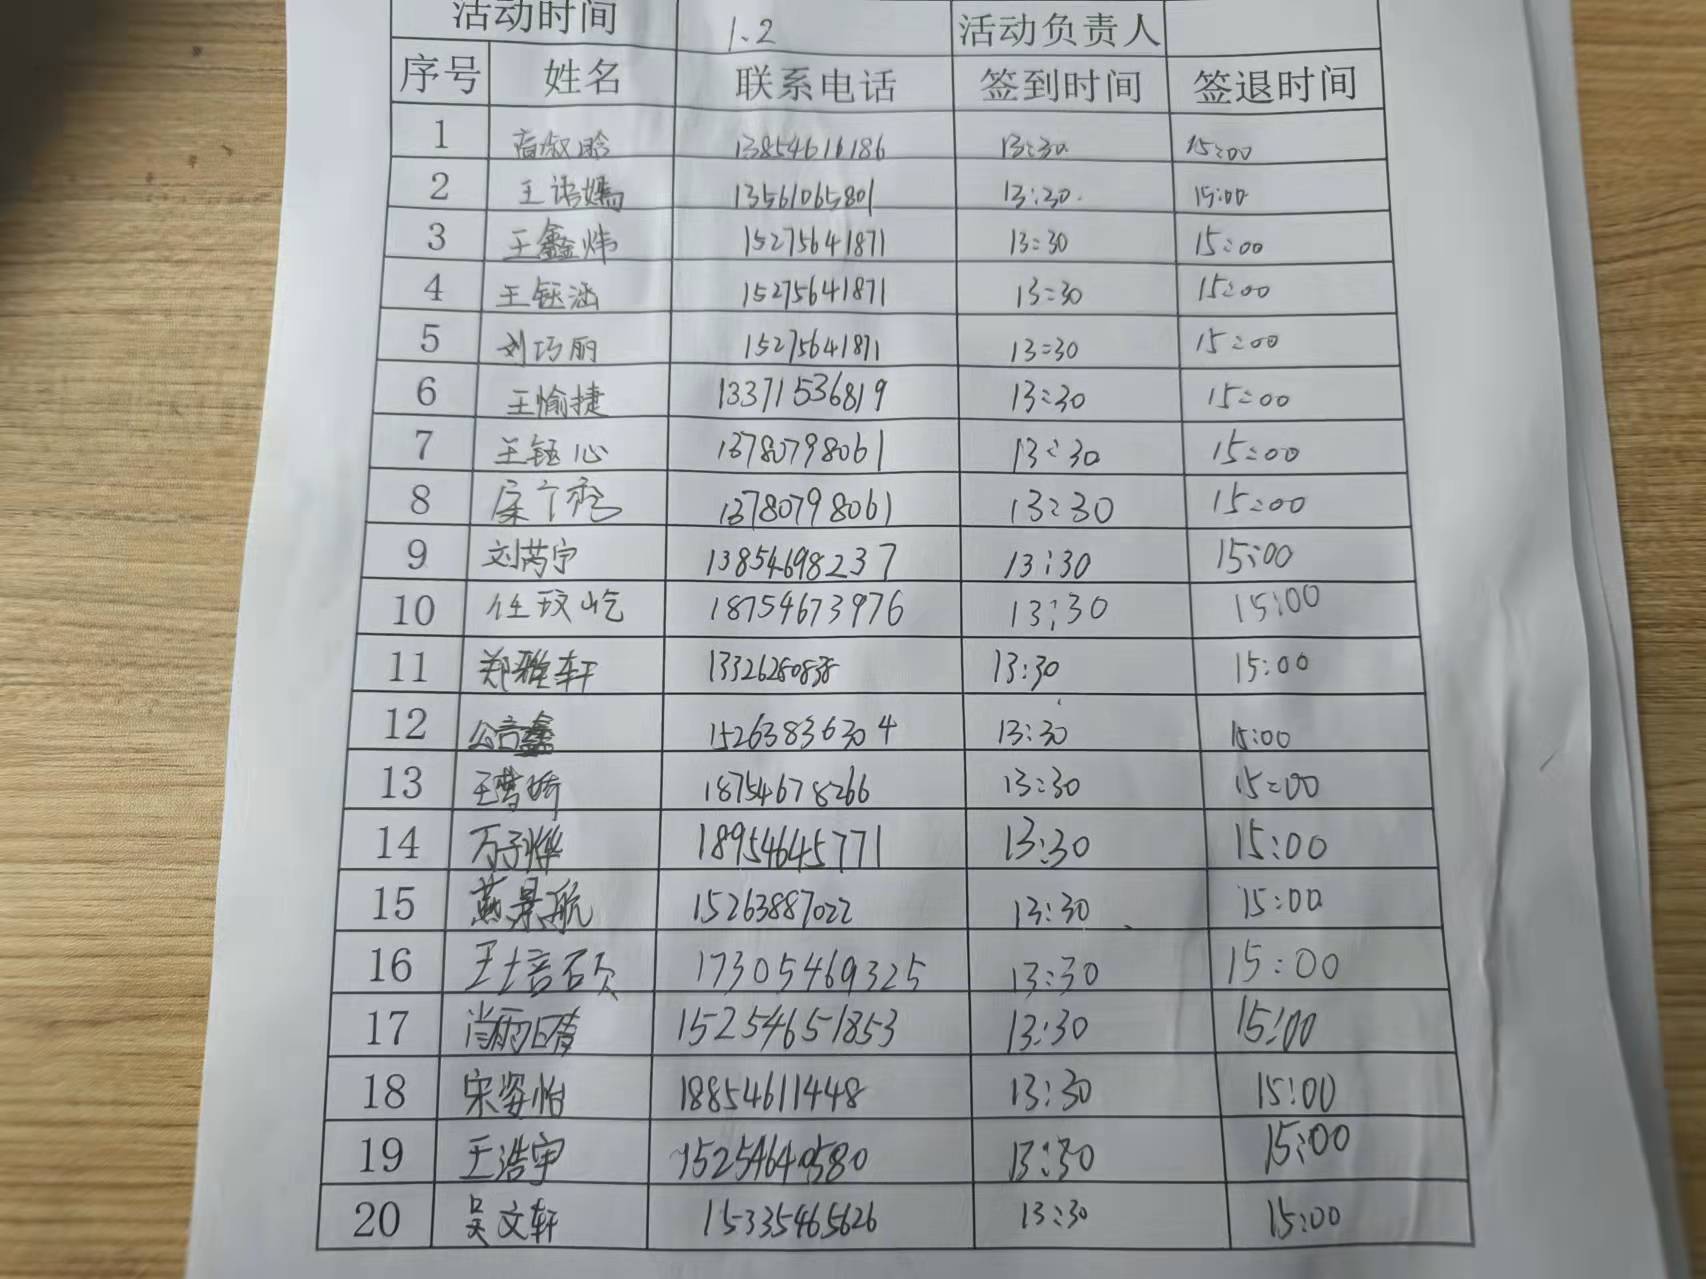 活动时间 1.2 活动负责人
序号 姓名 联系电话 签到时间 签退时间
1 13854616186 13:30 15:00
2 王语嫣 13561065801 13:30 15:00
3 王鑫炜 15275641871 13:30 15:00
4 王钰涵 15275641871 13:30 15:00
5 刘巧丽 15275641871 13:30 15:00
6 王愉捷 13371536819 13:30 15:00
7 王钰心 13780798061 13:30 15:00
8 13780798061 13:30 15:00
9 刘芮宇 13854698237 13:30 15:00
10 任玟屹 18754673976 13:30 15:00
11 郑雅轩 13326280838 13:30 15:00
12 15263836304 13:30 15:00
13 18754678266 13:30 15:00
14 万子烨 18954645771 13:30 15:00
15 燕景航 15263887022 13:30 15:00
16 王培硕 17305469325 13:30 15:00
17 肖雨晴 15254651853 13:30 15:00
18 宋姿怡 18854611448 13:30 15:00
19 王浩宇 13:30 15:00
20 吴文轩 15335465626 13:30 15:00